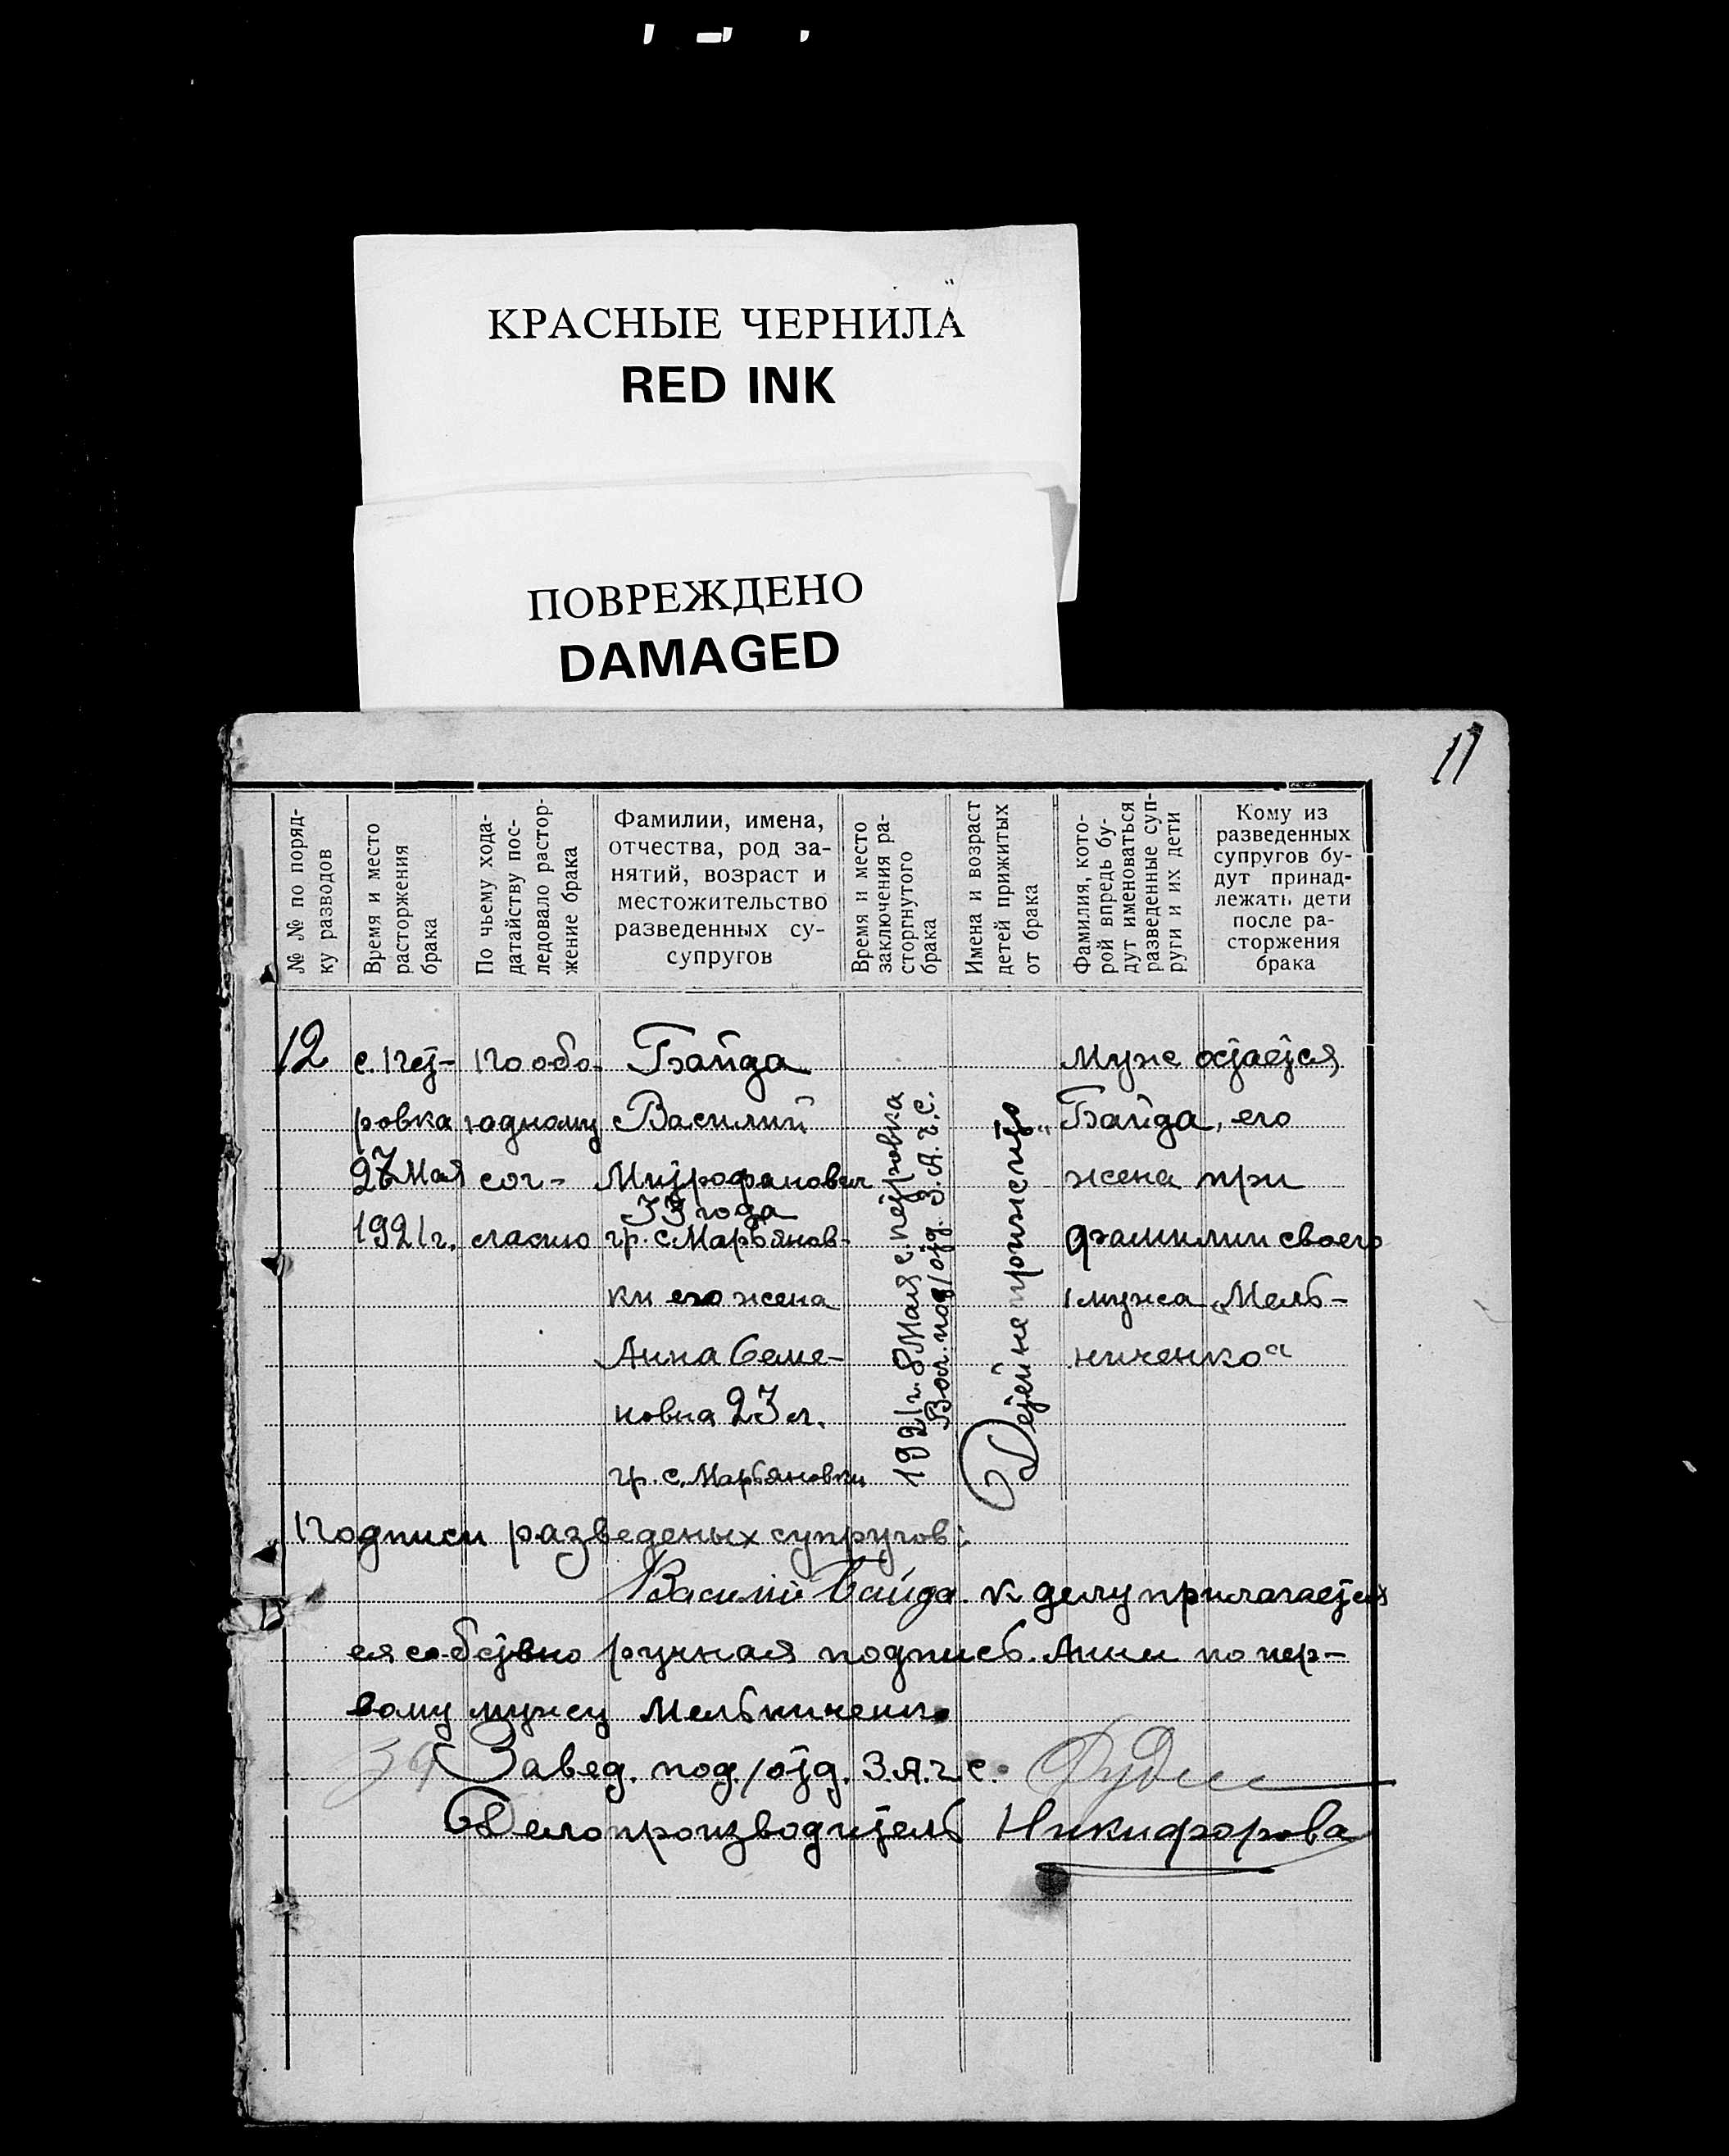 КРАСНЫЕ ЧЕРНИЛА
RED INK
ПОВРЕЖДЕНО
DAMAGED
11
№ № по поряд-
ку разводов
Время и место
расторжения
брака
По чьему хода-
датайству пос-
ледовало растор-
жение брака
Фамилии, имена,
отчества, род за-
нятий, возраст и
местожительство
разведенных су-
супругов
Время и место
заключения ра-
сторгнутого
брака
Имена и возраст
детей прижитых
от брака
Фамилия, кото-
рой впредь бу-
дут именоваться
разведенные суп-
руги и их дети
Кому из
разведенных
супругов бу-
дут принад-
лежать дети
после ра-
сторжения
брака
12
с. Пет-
ровка
27 Мая
1921 г.
По обо-
юдному
сог-
ласию
Байда
Василий
Митрофанович
33 года
гр. с. Марьянов-
ки его жена
Анна Семе-
новна 23 л.
гр. с. Марьяновки
1921 г. 8 Мая с. петровка
Вол. под/отд. З.А.г.С.
Детей не прижито
Муж остается
„Байда, его
жена при
фамилии своего
мужа „Мель-
ниченко“
Подписи разведеных супругов:
Василий Байда. К делу прилагается
ея собствено ручная подпись. Анны по пер-
вому мужу Мельниченко
За Завед. под./отд. З.А.г.С.
Делопроизводитель Никифорова